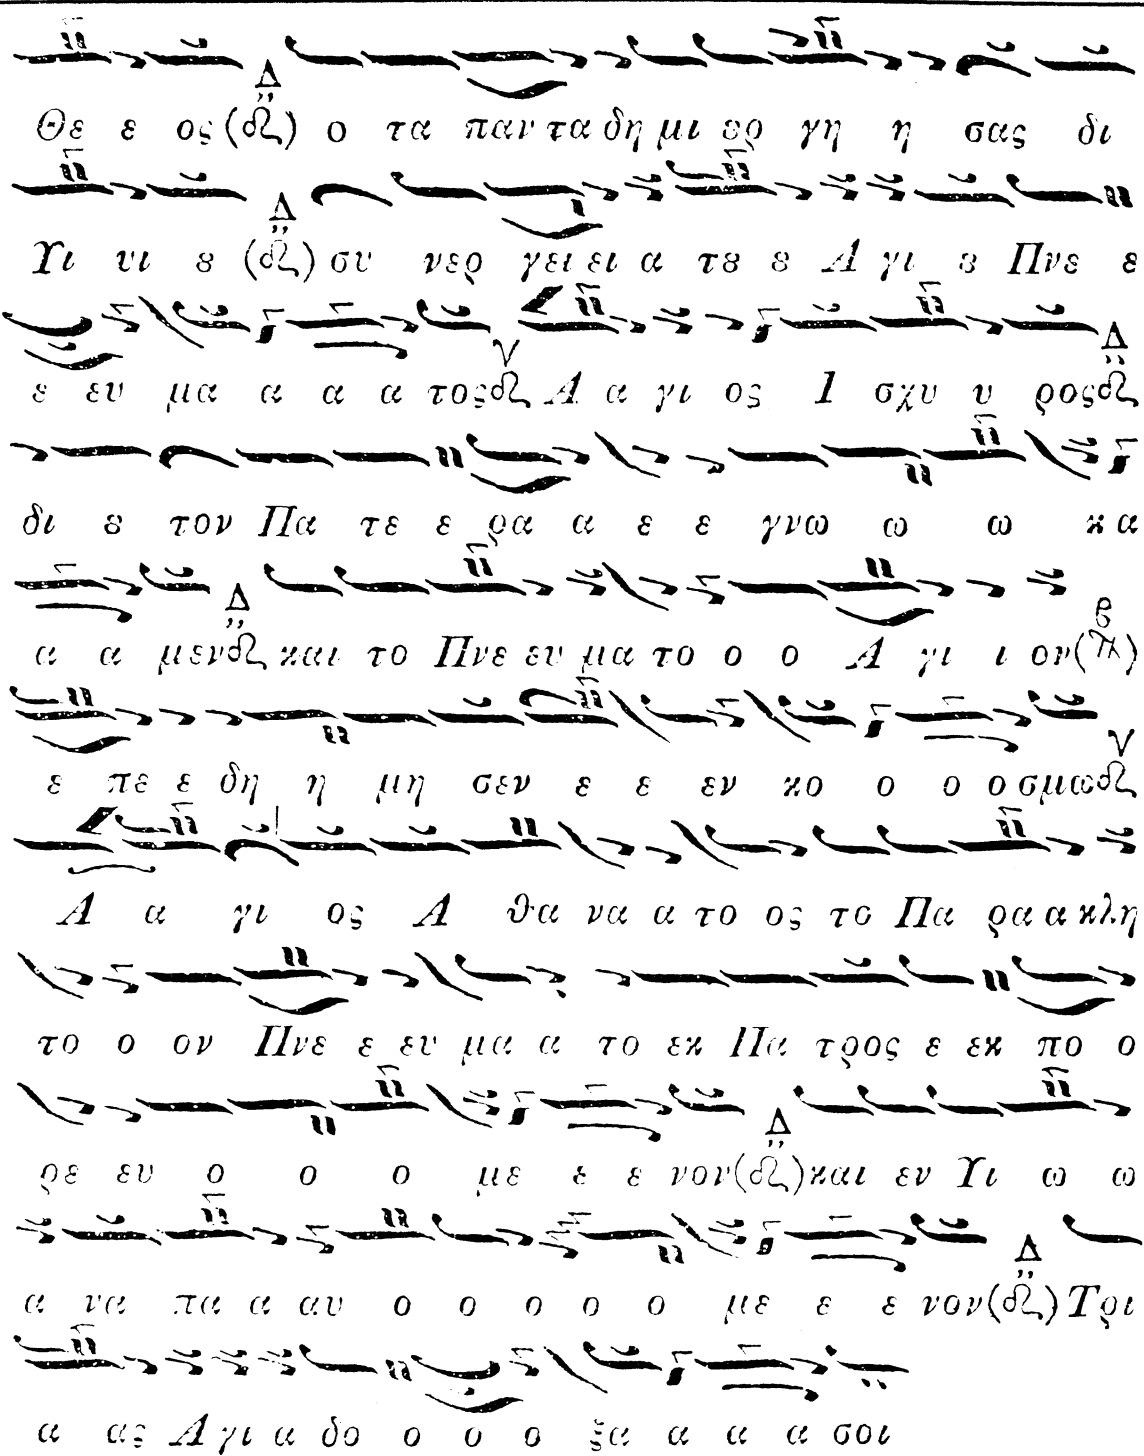 Θε ε ος (Δ) ο τα παν τα δη μι ȣρ γη η σας δι
Υι υι ȣ (Δ) συ νερ γει ει α τȣ ȣ Α γι ȣ Πνε ε
ε ευ μα α α α τος Α α γι ος Ι σχυ υ ρος Δ
δι ȣ τον Πα τε ε ρα α ε ε γνω ω ω κα
α α μεν Δ και το Πνε ευ μα το ο ο Α γι ι ον
ε πε ε δη η μη σεν ε ε εν κο ο ο ο σμω
Α α γι ος Α θα να α το ος το Πα ρα α κλη
το ο ον Πνε ε ευ μα α το εκ Πα τρος ε εκ πο ο
ρε ευ ο ο ο με ε ε νον (Δ) και εν Υι ω ω
α να πα α αυ ο ο ο ο ο με ε ε νον (Δ) Τρι
α ας Α γι α δο ο ο ο ξα α α α σοι